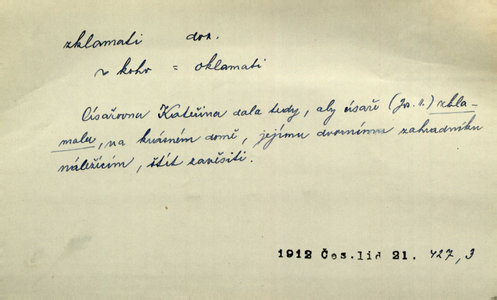 zklamati dok.
v koho = oklamati
Císařovna Kateřina dala tedy, aby císaře (Jos. II.) zkla-
mala, na krásném domě, jejímu dvornímu zahradníku
náležícím, štít zavěsiti.
1912 Čes. lid 21. 427, 3